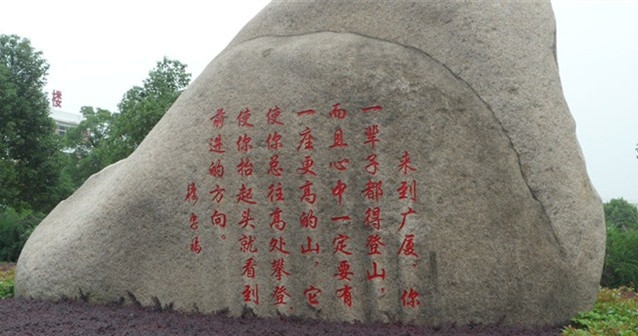 来到广厦，你
一辈子都得登山，
而且心中一定要有
一座更高的山，它
使你总往高处攀登，
使你抬起头就看到
前进的方向。
楼忠福
楼